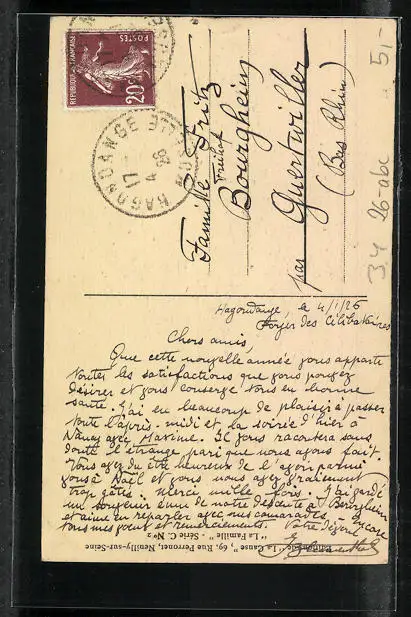 RÉPUBLIQUE FRANÇAISE
POSTES
20c
HAGONDANGE
17
4-1
26
MOSELLE
Famille Fritz
Bourgheim
par Guertwiller
(Bas Rhin)
5,-
3.4 26-abc
Hagondange, le 4/1/26
Foyer des Célibataires
Chers amis,
Que cette nouvelle année vous apporte
toutes les satisfactions que vous pouvez
désirer et vous conserve tous en bonne
santé. J'ai eu beaucoup de plaisir à passer
toute l'après-midi et la soirée d'hier à
Nancy avec Maxime. Il vous racontera sans
doute l'étrange pari que nous avons fait.
Vous avez dû être heureux de l'avoir parmi
vous à Noël et vous nous avez vraiment
trop gâtés. Merci mille fois. J'ai gardé
un souvenir ému de notre descente à Bourgheim
et aime en reparler avec nos camarades. Encore
tous mes vœux et remerciements. Votre dévoué
"La Cause", 69, Rue Perronet, Neuilly-sur-Seine
"La Famille" - Série C. N° 2